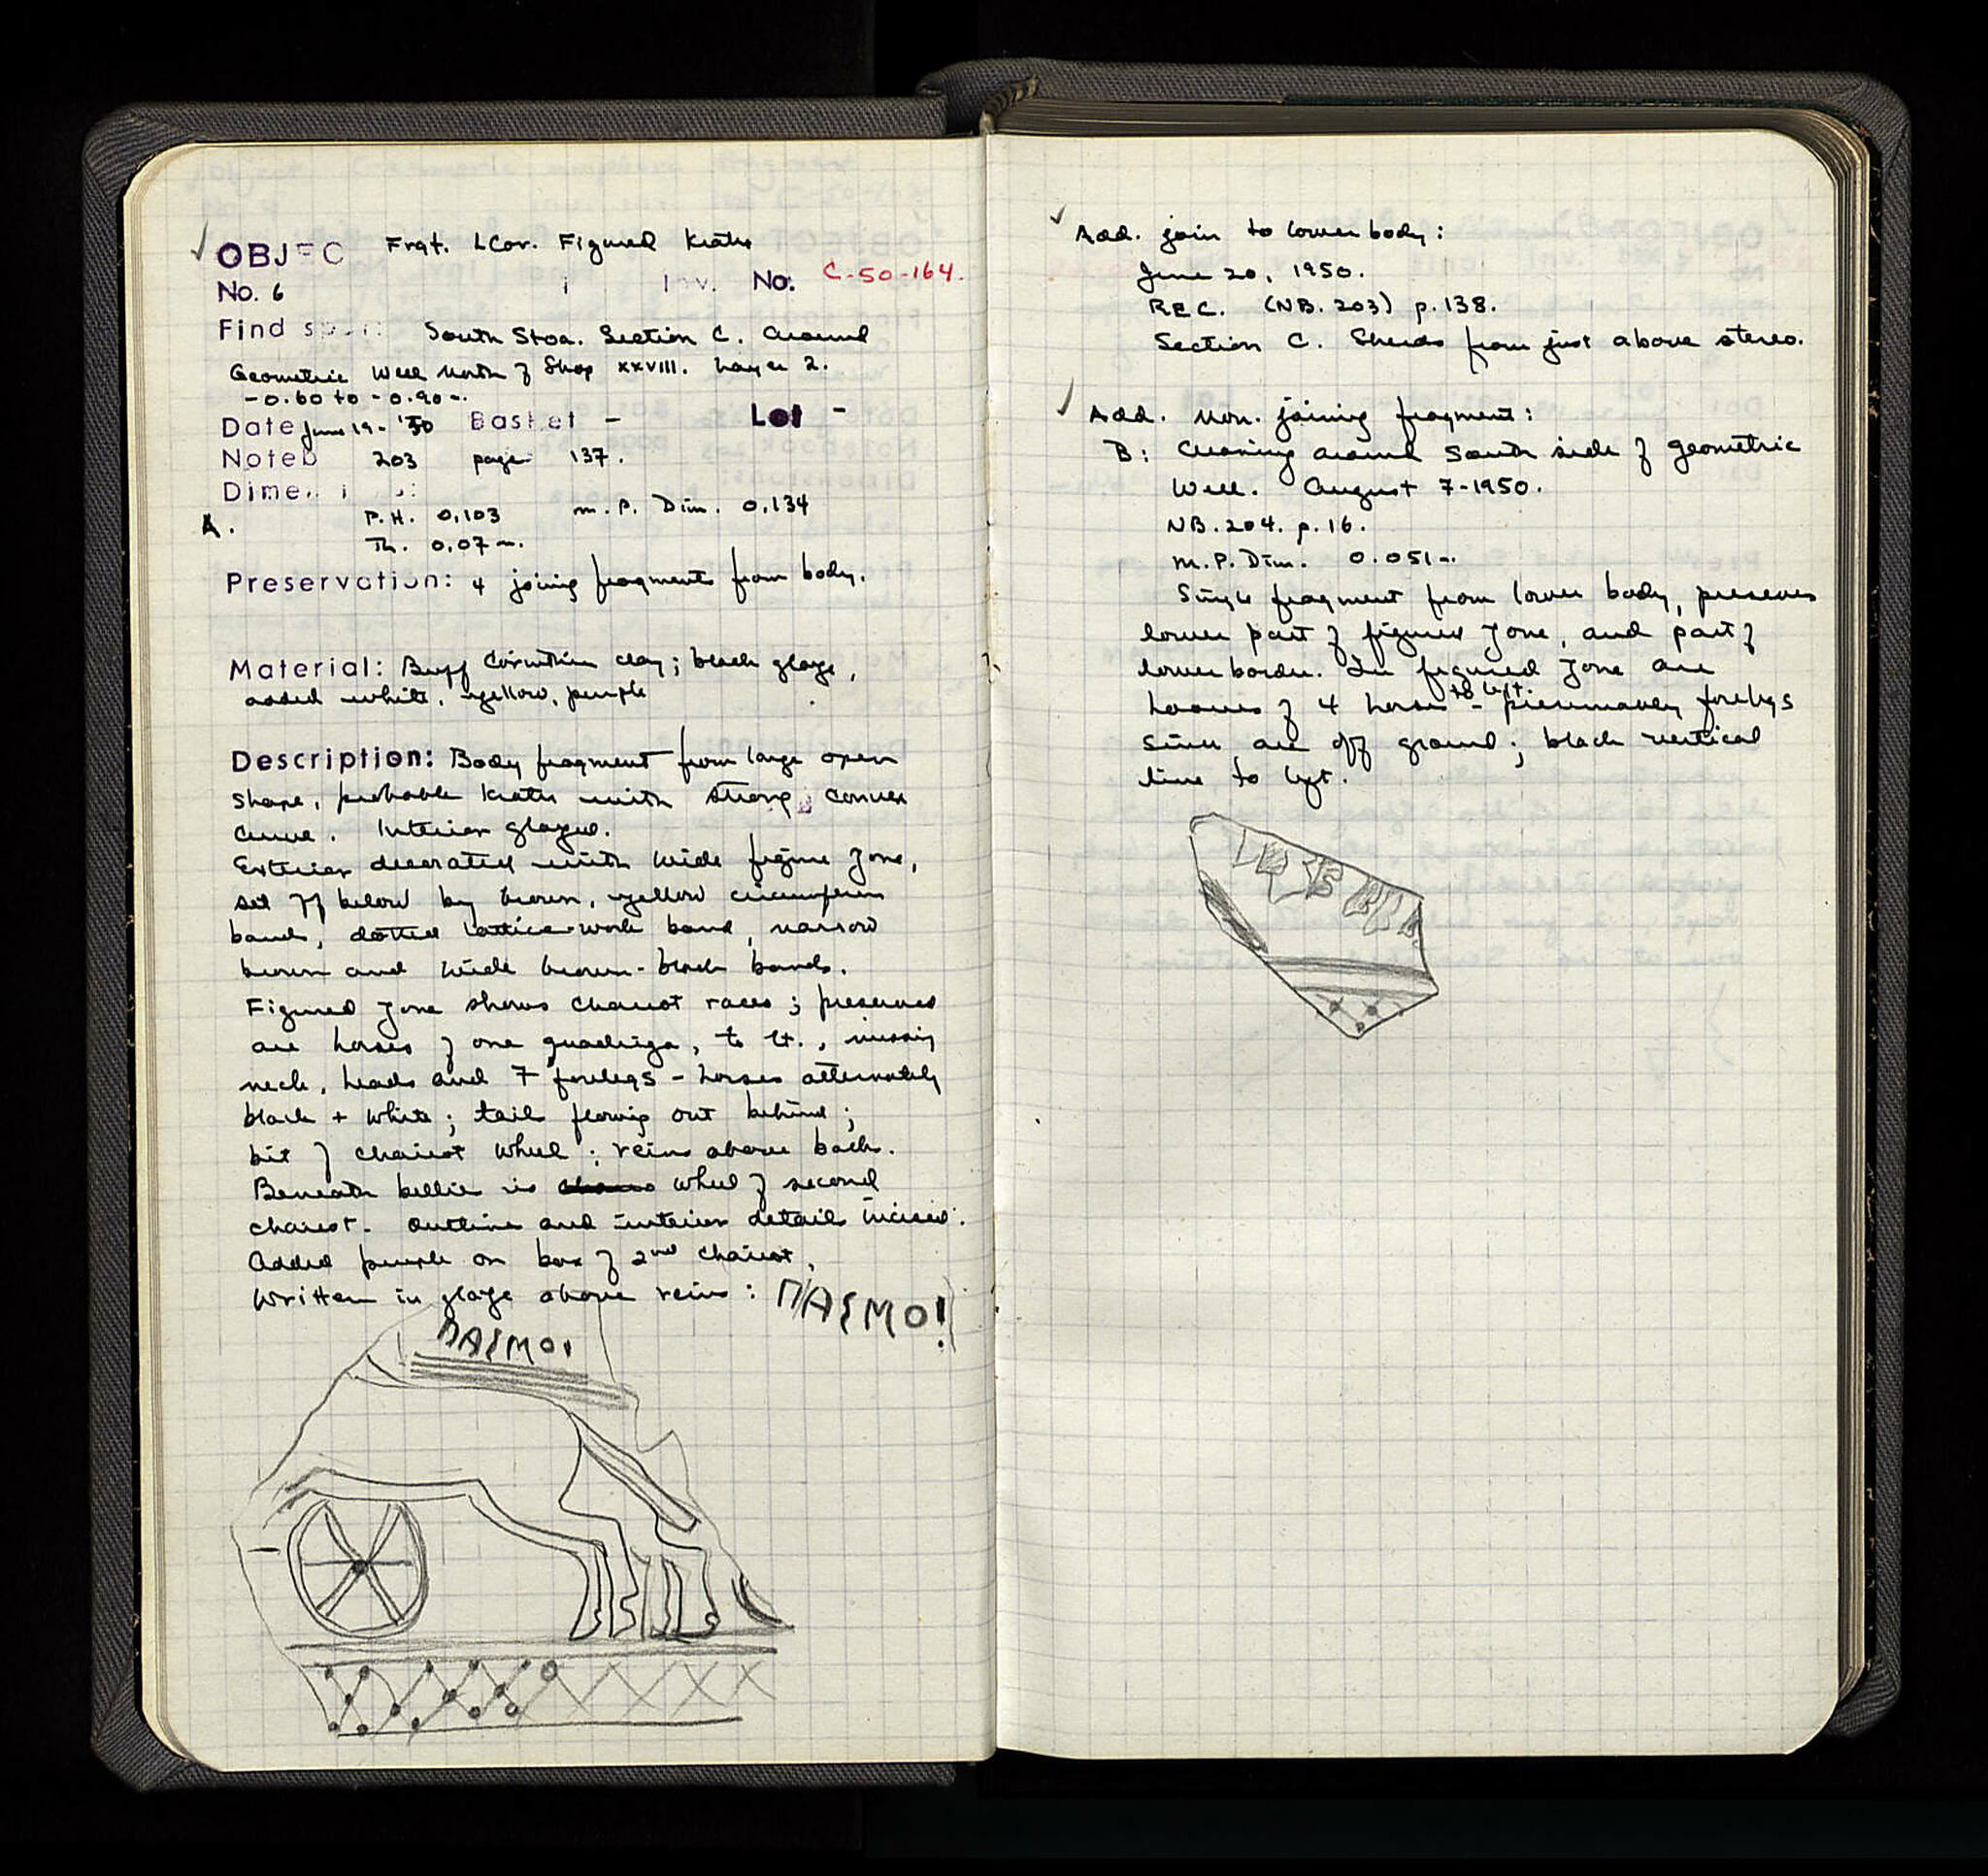 OBJEC Frgt. LCor. Figured Krater
No. 6 Inv. No. C-50-164.
Find spot: South Stoa. Section C. Around
Geometric Well north of Shop XXVIII. Layer 2.
-0.60 to -0.90 m.
Date June 19 - '50 Basket - Lot -
Noteb 203 page 137.
Dimen
A. P.H. 0,103 m.P. Dim. 0,134
Th. 0.07 m.
Preservation: 4 joining fragments from body.
Material: Buff Corinthian clay; black glaze,
added white, yellow, purple
Description: Body fragment from large open
shape, probable krater with strong convex
curve. Interior glazed.
Exterior decorated with wide figure zone,
set off below by brown, yellow circumferen
bands, dotted lattice-work band, narrow
brown and wide brown-black bands.
Figured zone shows chariot races; preserved
are horses of one quadriga, to rt., missing
neck, heads and 7 forelegs - horses alternately
black + white; tail flowing out behind;
bit of chariot wheel; reins above back.
Beneath bellies is wheel of second
chariot. Outline and interior details incised.
Added purple on box of 2nd chariot.
Written in glaze above reins: ΠΑΣΜΟ!
ΠΑΣΜΟΙ
Add. join to lower body:
June 20, 1950.
REC. (NB. 203) p. 138.
Section C. Sherds from just above stereo.
Add. non-joining fragment:
B: Cleaning around South side of Geometric
Well. August 7-1950.
NB. 204. p. 16.
m.P. Dim. 0.051 m.
Single fragment from lower body, preserves
lower part of figured zone, and part of
lower border. In figured zone are
hooves of 4 horses to left - presumably forelegs
since are off ground; black vertical
line to left.